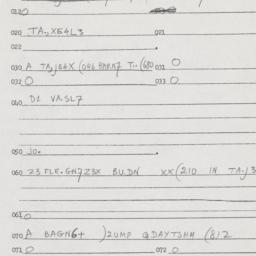 020 TA.,XE4L3 021
022
030 A TA,JE4X (046 031 O
032 O 033 O
040 D1 VA.SL7
050 10.
060 23 FLE.GN7Z3X BU.DN XX(210 IN TA.J3
061 O
070 A BAGN6+ )2UMP @DAYTSHH (812
071 O 072 O